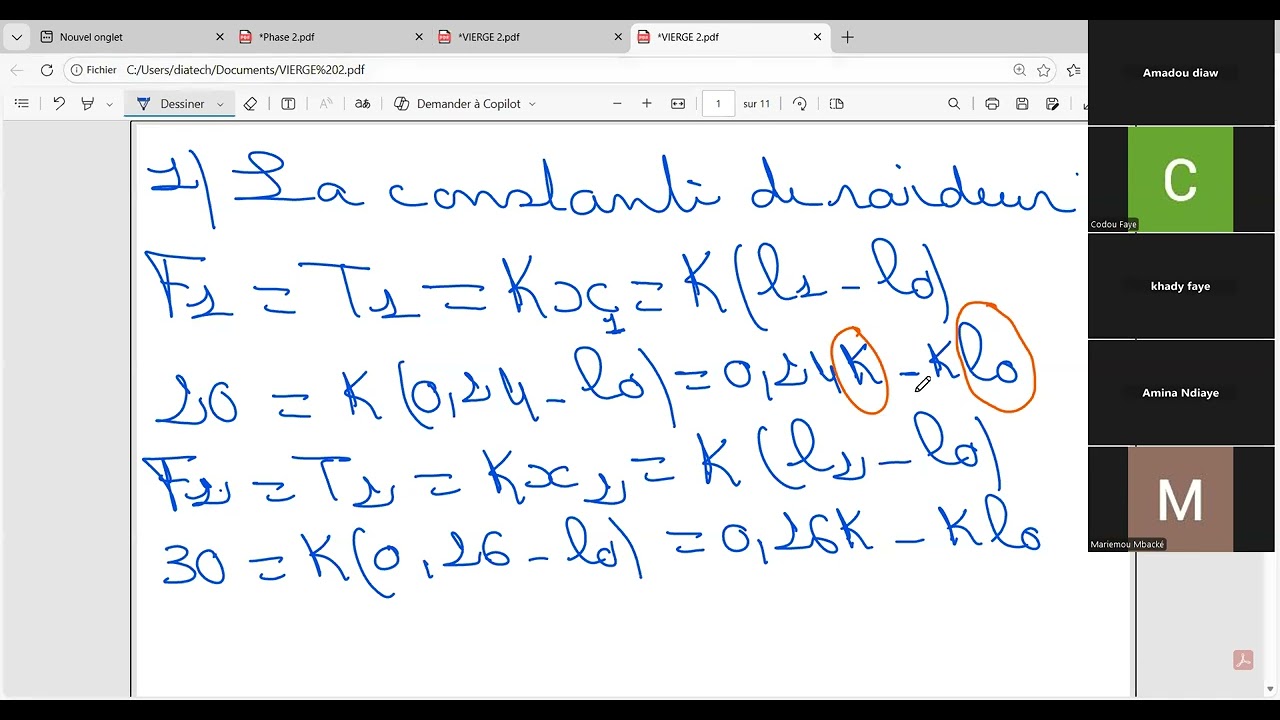 Nouvel onglet
*Phase 2.pdf
*VIERGE 2.pdf
*VIERGE 2.pdf
Fichier C:/Users/diatech/Documents/VIERGE%202.pdf
Dessiner
Demander à Copilot
1 sur 11
1) La constante de raideur
F1 = T1 = Kx1 = K(l1 - l0)
20 = K(0,24 - l0) = 0,24K - Kl0
F2 = T2 = Kx2 = K(l2 - l0)
30 = K(0,26 - l0) = 0,26K - Kl0
Amadou diaw
C
Codou Faye
khady faye
Amina Ndiaye
M
Mariemou Mbacké